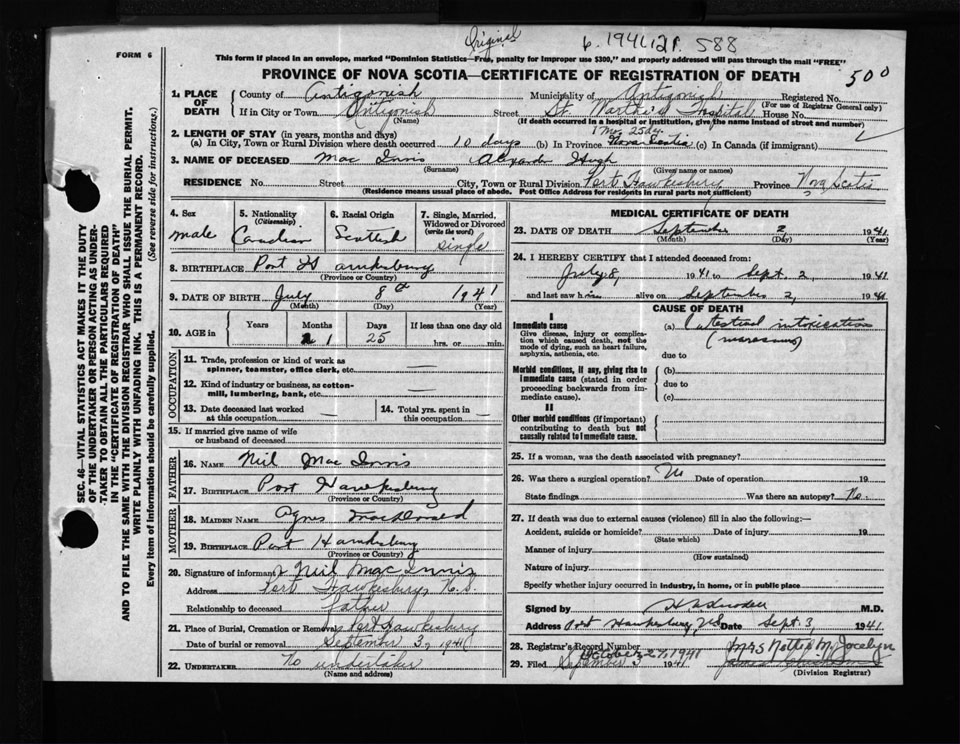 Original
6. 1941. 12P. 588
FORM 6
This form if placed in an envelope, marked "Dominion Statistics—Free, penalty for improper use $300," and properly addressed will pass through the mail "FREE"
PROVINCE OF NOVA SCOTIA—CERTIFICATE OF REGISTRATION OF DEATH
500
1. PLACE OF DEATH
County of Antigonish Municipality of Antigonish Registered No.
(For use of Registrar General only)
If in City or Town Antigonish Street St. Martha's Hospital House No.
(Name) (If death occurred in a hospital or institution, give the name instead of street and number)
2. LENGTH OF STAY (in years, months and days) 1 Mo. 25 da.
(a) In City, Town or Rural Division where death occurred 10 days (b) In Province Nova Scotia (c) In Canada (if immigrant)
3. NAME OF DECEASED Mac Innis Alexander Hugh
(Surname) (Given name or names)
RESIDENCE No. Street City, Town or Rural Division Port Hawkesbury Province Nova Scotia
(Residence means usual place of abode. Post Office Address for residents in rural parts not sufficient)
4. Sex male
5. Nationality (Citizenship) Canadian
6. Racial Origin Scottish
7. Single, Married, Widowed or Divorced (write the word) single
8. BIRTHPLACE Port Hawkesbury
(Province or Country)
9. DATE OF BIRTH July 8th 1941
(Month) (Day) (Year)
10. AGE in Years Months Days If less than one day old
1 25 hrs. or min.
OCCUPATION
11. Trade, profession or kind of work as spinner, teamster, office clerk, etc. —
12. Kind of industry or business, as cotton-mill, lumbering, bank, etc. —
13. Date deceased last worked at this occupation —
14. Total yrs. spent in this occupation —
15. If married give name of wife or husband of deceased
FATHER
16. NAME Neil Mac Innis
17. BIRTHPLACE Port Hawkesbury
(Province or Country)
MOTHER
18. MAIDEN NAME Agnes MacDonald
19. BIRTHPLACE Port Hawkesbury
(Province or Country)
20. Signature of informant Neil Mac Innis
Address Port Hawkesbury N.S.
Relationship to deceased father
21. Place of Burial, Cremation or Removal Port Hawkesbury
Date of burial or removal September 3, 1941
22. UNDERTAKER No undertaker
(Name and address)
MEDICAL CERTIFICATE OF DEATH
23. DATE OF DEATH September 2 1941
(Month) (Day) (Year)
24. I HEREBY CERTIFY that I attended deceased from:
July 8, 1941 to Sept. 2 1941
and last saw him alive on September 2, 1941
CAUSE OF DEATH
I
Immediate cause (a) Intestinal intoxication
Give disease, injury or complication which caused death, not the mode of dying, such as heart failure, asphyxia, asthenia, etc.
(marasmus)
due to
Morbid conditions, if any, giving rise to immediate cause (stated in order proceeding backwards from immediate cause).
(b)
due to
(c)
II
Other morbid conditions (if important) contributing to death but not causally related to immediate cause.
25. If a woman, was the death associated with pregnancy?
26. Was there a surgical operation? No Date of operation 19
State findings Was there an autopsy? No.
27. If death was due to external causes (violence) fill in also the following:—
Accident, suicide or homicide? Date of injury 19
(State which)
Manner of injury
(How sustained)
Nature of injury
Specify whether injury occurred in industry, in home, or in public place
Signed by M.D.
Address Port Hawkesbury, N.S. Date Sept 3, 1941
28. Registrar's Record Number
October 27, 1941 Mrs Nettie M. Jocelyn
29. Filed September 3 1941
(Division Registrar)
SEC. 46—VITAL STATISTICS ACT MAKES IT THE DUTY
OF THE UNDERTAKER OR PERSON ACTING AS UNDER-
TAKER TO OBTAIN ALL THE PARTICULARS REQUIRED
IN THE "CERTIFICATE OF REGISTRATION OF DEATH"
AND TO FILE THE SAME WITH THE DIVISION REGISTRAR WHO SHALL ISSUE THE BURIAL PERMIT.
WRITE PLAINLY WITH UNFADING INK. THIS IS A PERMANENT RECORD.
Every item of information should be carefully supplied. (See reverse side for instructions.)